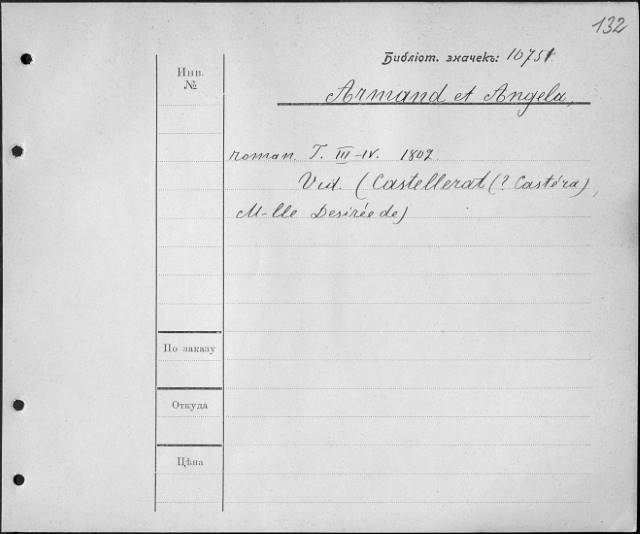 132
Библіот. значекъ: 10751
Инв.
№
Armand et Angela,
roman. T. III-IV. 1802.
Vid. (Castellerat (? Castéra),
M-lle Desirée de)
По заказу
Откуда
Цѣна